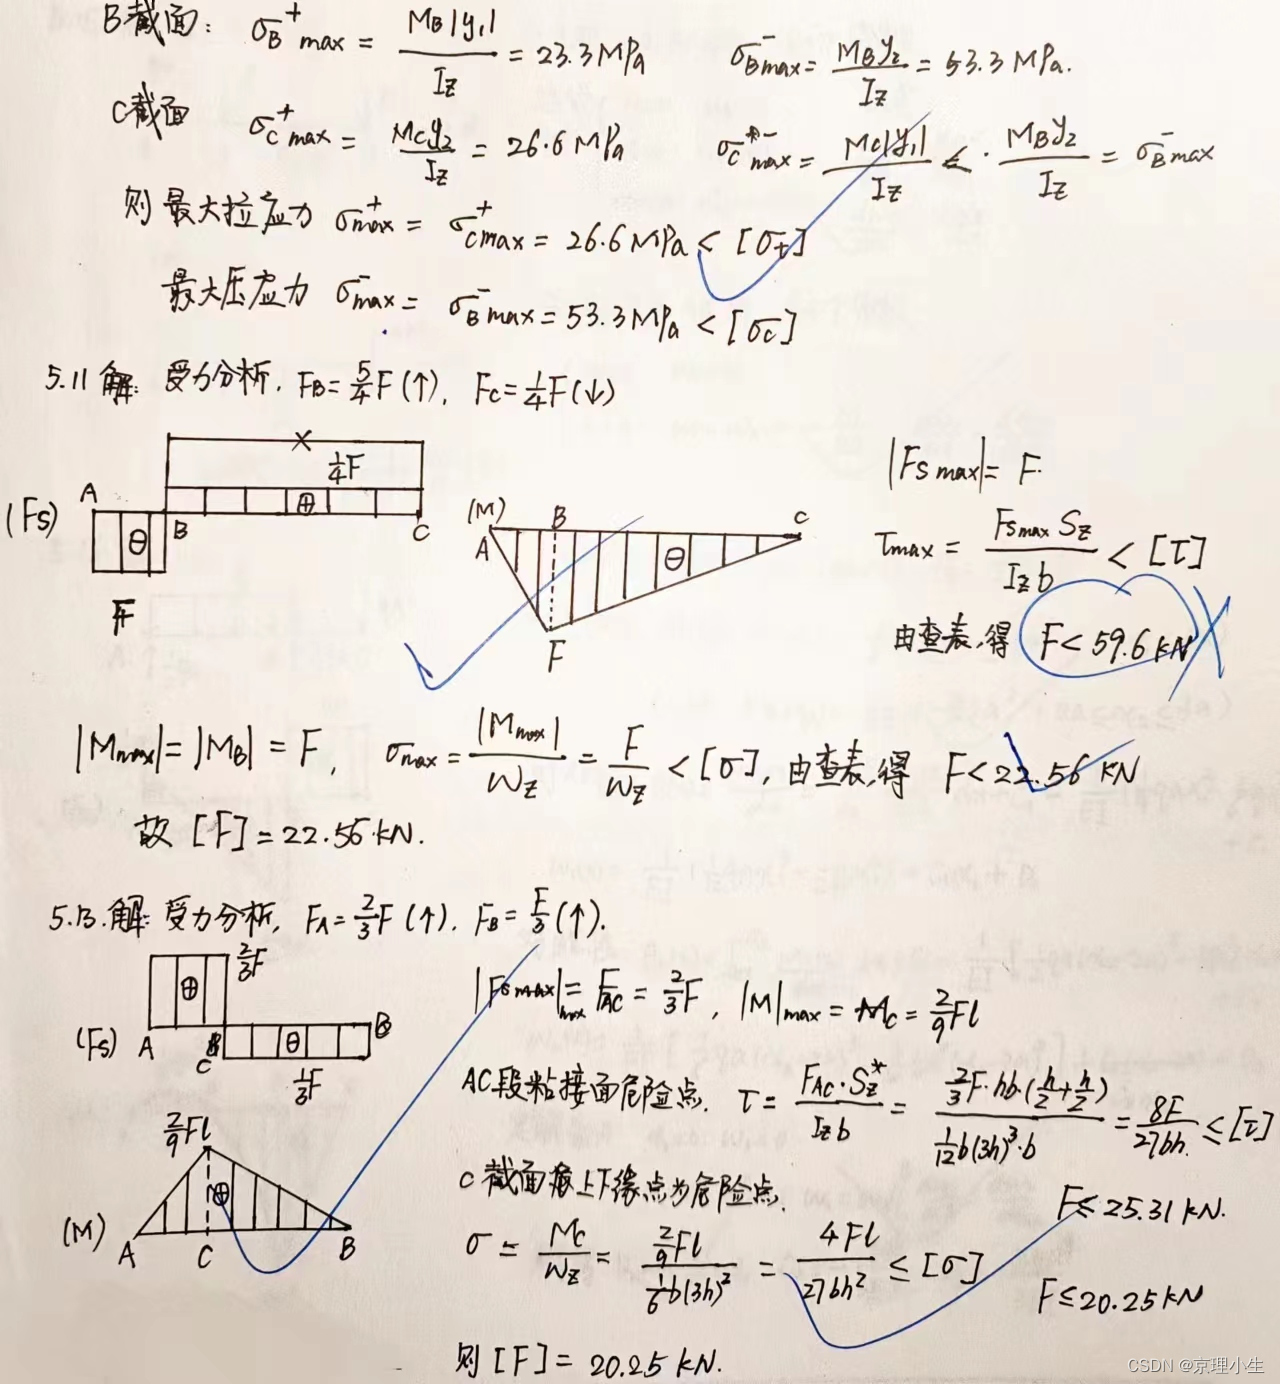 B截面: σB⁺max = MB|y₁|/Iz = 23.3MPa  σ⁻Bmax = MBy₂/Iz = 53.3MPa.
C截面 σC⁺max = MCy₂/Iz = 26.6MPa  σC⁻max = MC|y₁|/Iz < · MBy₂/Iz = σ⁻Bmax
则最大拉应力 σ⁺max = σ⁺Cmax = 26.6MPa < [σt]
最大压应力 σ⁻max = σ⁻Bmax = 53.3MPa < [σc]
5.11 解: 受力分析, FB = 5/4F (↑), FC = 1/4F (↓)
(Fs) A B C ⊖ ⊕ 1/4F F
(M) A B C ⊖ F
|Fsmax| = F.
τmax = Fsmax Sz/Izb < [τ]
由查表,得 F < 59.6kN
|Mmax| = |MB| = F, σmax = |Mmax|/Wz = F/Wz < [σ], 由查表,得 F < 22.56 KN
故 [F] = 22.56 kN.
5.13.解: 受力分析, FA = 2/3F (↑). FB = F/3 (↑).
(Fs) A C B ⊕ 2/3F ⊖ 1/3F
|Fsmax|max = FAC = 2/3F, |M|max = MC = 2/9Fl
AC段粘接面危险点. τ = FAC·Sz*/Izb = 2/3F·hb·(h/2+h/2)/1/12b(3h)³·b = 8F/27bh ≤ [τ]
F ≤ 25.31 kN.
(M) A C B ⊕ 2/9Fl
C截面 上下缘点为危险点.
σ = MC/Wz = 2/9Fl/1/6b(3h)² = 4Fl/27bh² ≤ [σ]
F ≤ 20.25 KN
则 [F] = 20.25 kN.
CSDN @京理小生